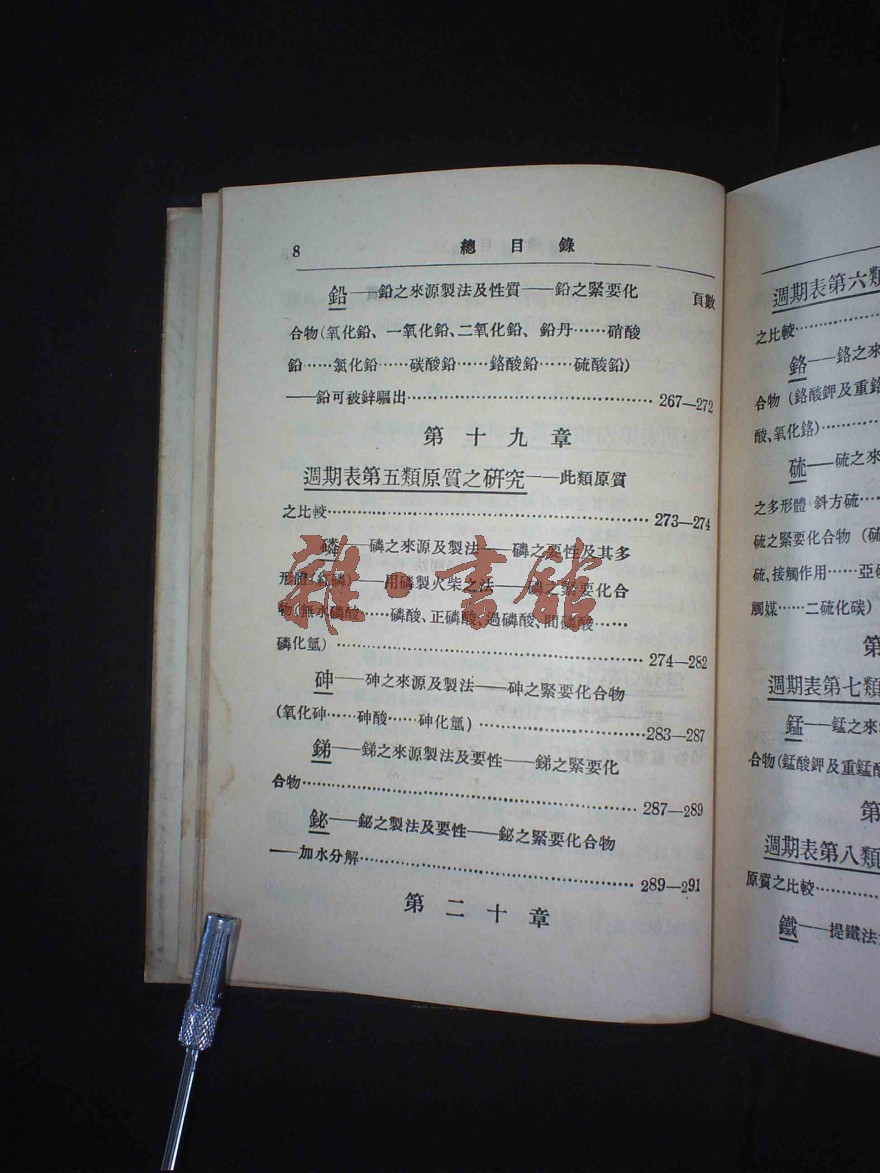 8 總目錄
頁數
鉛——鉛之來源製法及性質——鉛之緊要化
合物(氧化鉛、一氧化鉛、二氧化鉛、鉛丹……硝酸
鉛……氯化鉛……碳酸鉛……鉻酸鉛……硫酸鉛)
——鉛可被鋅驅出……267—272
第十九章
週期表第五類原質之研究——此類原質
之比較……273—274
磷——磷之來源及製法——磷之要性及其多
形體(紅磷)——用磷製火柴之法——磷之緊要化合
物(無水磷酸……磷酸、正磷酸、過磷酸、間磷酸……
磷化氫)……274—282
砷——砷之來源及製法——砷之緊要化合物
(氧化砷……砷酸……砷化氫)……283—287
銻——銻之來源製法及要性——銻之緊要化
合物……287—289
鉍——鉍之製法及要性——鉍之緊要化合物
——加水分解……289—291
第二十章
雜·書館
週期表第六類
之比較……
鉻——鉻之來
合物(鉻酸鉀及重鉻
酸、氧化鉻)……
硫——硫之來
之多形體 斜方硫……
硫之緊要化合物(硫
硫、接觸作用……亞硫
觸媒……二硫化碳)
第
週期表第七類
錳——錳之來
合物(錳酸鉀及重錳酸
第
週期表第八類
原質之比較……
鐵——提鐵法